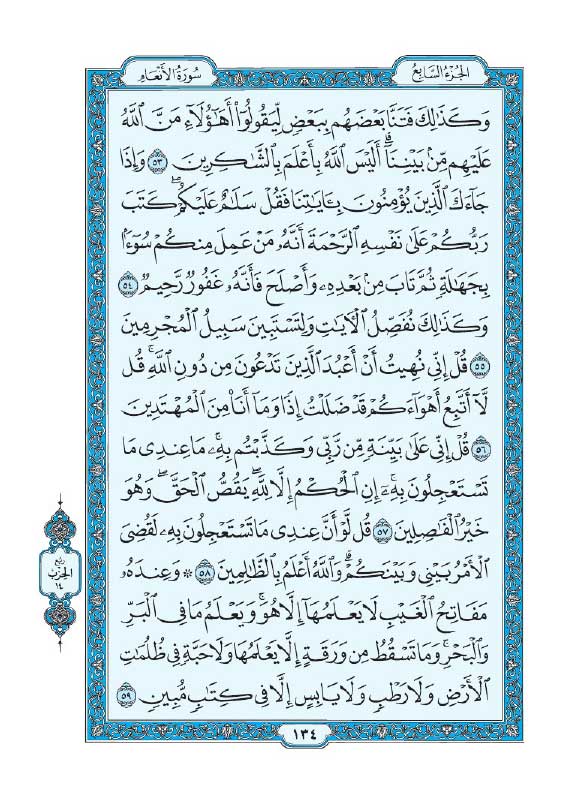 الجُزْءُ السَّابِعُ
سُورَةُ الأَنْعَامِ
وَكَذَٰلِكَ فَتَنَّا بَعْضَهُم بِبَعْضٍ لِّيَقُولُوٓاْ أَهَٰٓؤُلَآءِ مَنَّ ٱللَّهُ
عَلَيْهِم مِّنۢ بَيْنِنَآۗ أَلَيْسَ ٱللَّهُ بِأَعْلَمَ بِٱلشَّٰكِرِينَ ٥٣ وَإِذَا
جَآءَكَ ٱلَّذِينَ يُؤْمِنُونَ بِـَٔايَٰتِنَا فَقُلْ سَلَٰمٌ عَلَيْكُمْۖ كَتَبَ
رَبُّكُمْ عَلَىٰ نَفْسِهِ ٱلرَّحْمَةَ أَنَّهُۥ مَنْ عَمِلَ مِنكُمْ سُوٓءَۢا
بِجَهَٰلَةٍ ثُمَّ تَابَ مِنۢ بَعْدِهِۦ وَأَصْلَحَ فَأَنَّهُۥ غَفُورٌ رَّحِيمٌ ٥٤
وَكَذَٰلِكَ نُفَصِّلُ ٱلْأٓيَٰتِ وَلِتَسْتَبِينَ سَبِيلُ ٱلْمُجْرِمِينَ
٥٥ قُلْ إِنِّي نُهِيتُ أَنْ أَعْبُدَ ٱلَّذِينَ تَدْعُونَ مِن دُونِ ٱللَّهِۚ قُل
لَّآ أَتَّبِعُ أَهْوَآءَكُمْ قَدْ ضَلَلْتُ إِذًا وَمَآ أَنَا۠ مِنَ ٱلْمُهْتَدِينَ
٥٦ قُلْ إِنِّي عَلَىٰ بَيِّنَةٍ مِّن رَّبِّي وَكَذَّبْتُم بِهِۦۚ مَا عِندِي مَا
تَسْتَعْجِلُونَ بِهِۦٓۚ إِنِ ٱلْحُكْمُ إِلَّا لِلَّهِۖ يَقُصُّ ٱلْحَقَّۖ وَهُوَ
خَيْرُ ٱلْفَٰصِلِينَ ٥٧ قُل لَّوْ أَنَّ عِندِي مَا تَسْتَعْجِلُونَ بِهِۦ لَقُضِيَ
ٱلْأَمْرُ بَيْنِي وَبَيْنَكُمْۗ وَٱللَّهُ أَعْلَمُ بِٱلظَّٰلِمِينَ ٥٨ ۞ وَعِندَهُۥ
مَفَاتِحُ ٱلْغَيْبِ لَا يَعْلَمُهَآ إِلَّا هُوَۚ وَيَعْلَمُ مَا فِي ٱلْبَرِّ
وَٱلْبَحْرِۚ وَمَا تَسْقُطُ مِن وَرَقَةٍ إِلَّا يَعْلَمُهَا وَلَا حَبَّةٍ فِي ظُلُمَٰتِ
ٱلْأَرْضِ وَلَا رَطْبٍ وَلَا يَابِسٍ إِلَّا فِي كِتَٰبٍ مُّبِينٍ ٥٩
ربع
الحزب
١٤
١٣٤